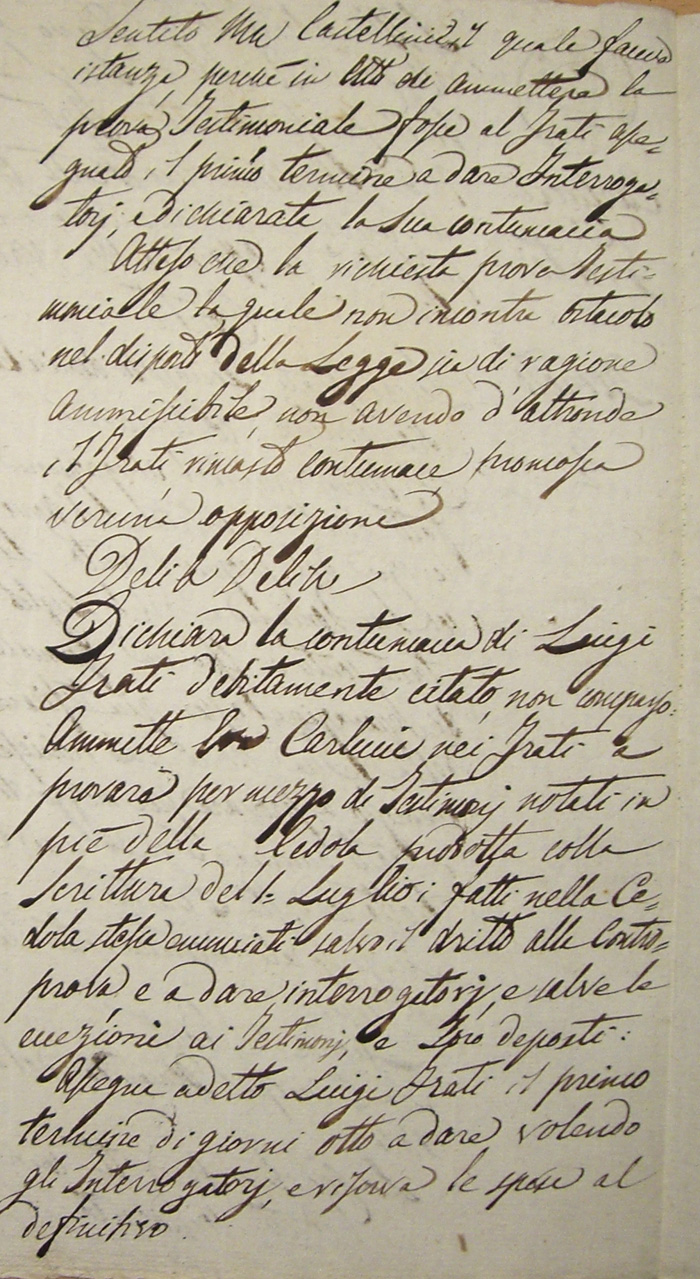 Sentito Mr Castellini il quale faceva
istanza, perchè in atto di ammettere la
prova Testimoniale fosse al Frati asse=
gnato il primo termine a dare Interroga=
torj, e dichiarata la sua contumacia
Atteso che la richiesta prova Testi=
moniale la quale non incontra ostacolo
nel disposto della Legge sia di ragione
ammissibile, non avendo d'altronde
il Frati rimasto contumace promossa
veruna opposizione
Delib Delib
Dichiara la contumacia di Luigi
Frati debitamente citato, non comparso:
Ammette la Carlini nei Frati a
provare per mezzo di Testimonj notati in
piè della Cedola prodotta colla
Scrittura del 1: Luglio i fatti nella Ce=
dola stessa enunciati salvo il dritto alla Contro=
prova e a dare interrogatorj, e salve le
eccezioni ai Testimonj, e Loro deposti:
Assegna a detto Luigi Frati il primo
termine di giorni otto a dare volendo
gli Interrogatorj, e riserva le spese al
definitivo.